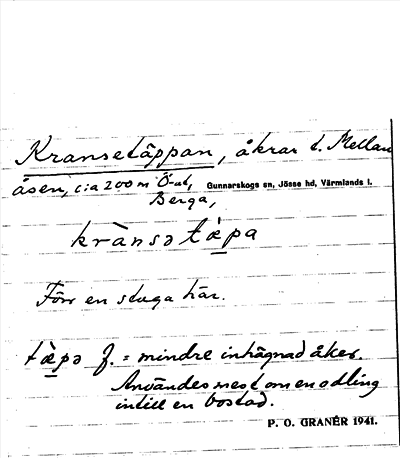 Kransetäppan, åkrar t. Mellan
åsen, c:a 200 m Ö-ut, Gunnarskogs sn, Jösse hd, Värmlands l.
Berga,
krànsətæ̀pa
Förr en stuga här.
tæ̀pə f. = mindre inhägnad åker.
Användes mest om en odling
intill en bostad.
P. O. GRANÉR 1941.